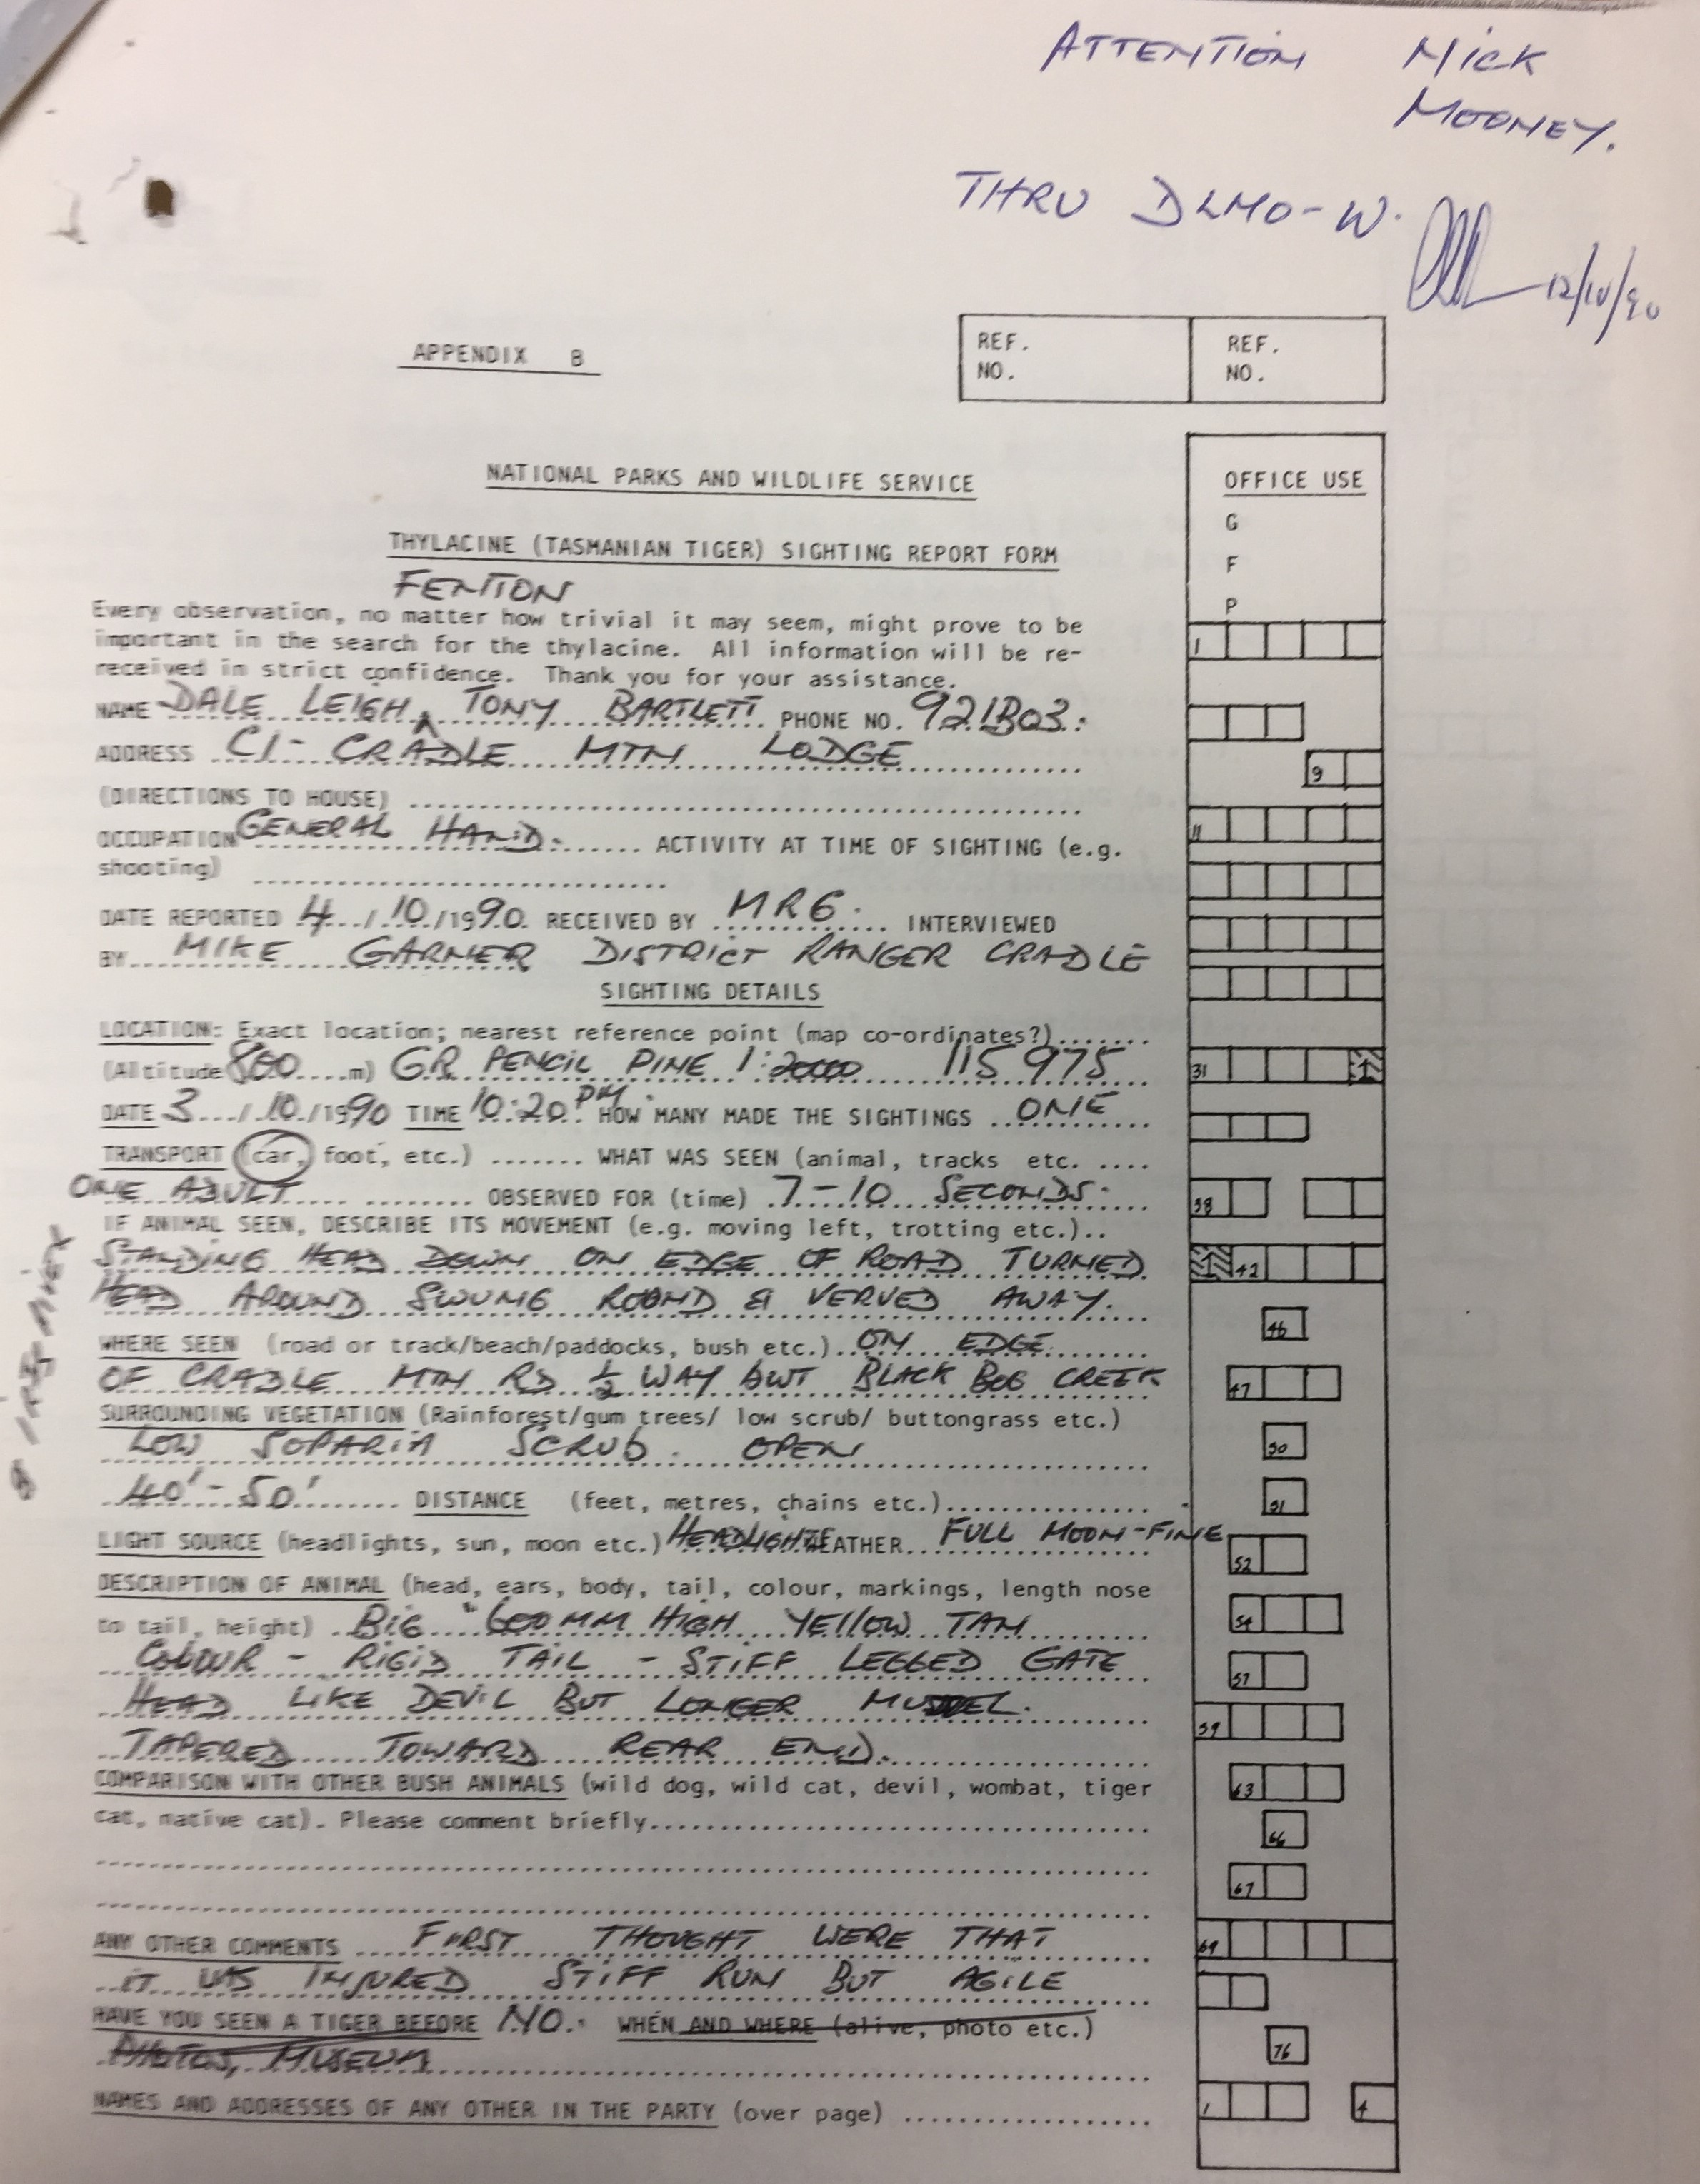 ATTENTION MICK
MOONEY.
THRU DLMO-W.
12/10/90
APPENDIX B
REF. NO.
REF. NO.
NATIONAL PARKS AND WILDLIFE SERVICE
OFFICE USE
G
F
P
THYLACINE (TASMANIAN TIGER) SIGHTING REPORT FORM
FENTON
Every observation, no matter how trivial it may seem, might prove to be
important in the search for the thylacine. All information will be re-
received in strict confidence. Thank you for your assistance.
1
NAME DALE LEIGH, TONY BARTLETT PHONE NO. 921303.
ADDRESS C/- CRADLE MTN LODGE
9
(DIRECTIONS TO HOUSE)
OCCUPATION GENERAL HAND. ACTIVITY AT TIME OF SIGHTING (e.g.
11
shooting)
DATE REPORTED 4/10/1990. RECEIVED BY MRG. INTERVIEWED
BY MIKE GARNER DISTRICT RANGER CRADLE
SIGHTING DETAILS
LOCATION: Exact location; nearest reference point (map co-ordinates?)
(Altitude 800 m) GR PENCIL PINE 1: 115 975
31
DATE 3/10/1990 TIME 10:20 PM. HOW MANY MADE THE SIGHTINGS ONE
TRANSPORT (car, foot, etc.) WHAT WAS SEEN (animal, tracks etc.
ONE ADULT OBSERVED FOR (time) 7-10 SECONDS.
38
IF ANIMAL SEEN, DESCRIBE ITS MOVEMENT (e.g. moving left, trotting etc.)..
STANDING HEAD DOWN ON EDGE OF ROAD TURNED
42
HEAD AROUND SWUNG ROUND & VERVED AWAY.
46
WHERE SEEN (road or track/beach/paddocks, bush etc.) ON EDGE
OF CRADLE MTN RD ½ WAY BWT BLACK BOG CREEK
47
SURROUNDING VEGETATION (Rainforest/gum trees/ low scrub/ buttongrass etc.)
LOW SOPARIA SCRUB. OPEN
50
40'-50' DISTANCE (feet, metres, chains etc.)
51
LIGHT SOURCE (headlights, sun, moon etc.) HEADLIGHTS WEATHER FULL MOON-FINE
52
DESCRIPTION OF ANIMAL (head, ears, body, tail, colour, markings, length nose
to tail, height) BIG 600MM HIGH YELLOW TAN
54
COLOUR - RIGID TAIL - STIFF LEGGED GATE
57
HEAD LIKE DEVIL BUT LONGER
59
TAPERED TOWARD REAR END.
COMPARISON WITH OTHER BUSH ANIMALS (wild dog, wild cat, devil, wombat, tiger
63
cat, native cat). Please comment briefly
66
67
ANY OTHER COMMENTS FIRST THOUGHT WERE THAT
69
IT WAS INJURED STIFF RUN BUT AGILE
HAVE YOU SEEN A TIGER BEFORE NO. WHEN AND WHERE (alive, photo etc.)
76
PHOTOS, MUSEUM
NAMES AND ADDRESSES OF ANY OTHER IN THE PARTY (over page)
1
4